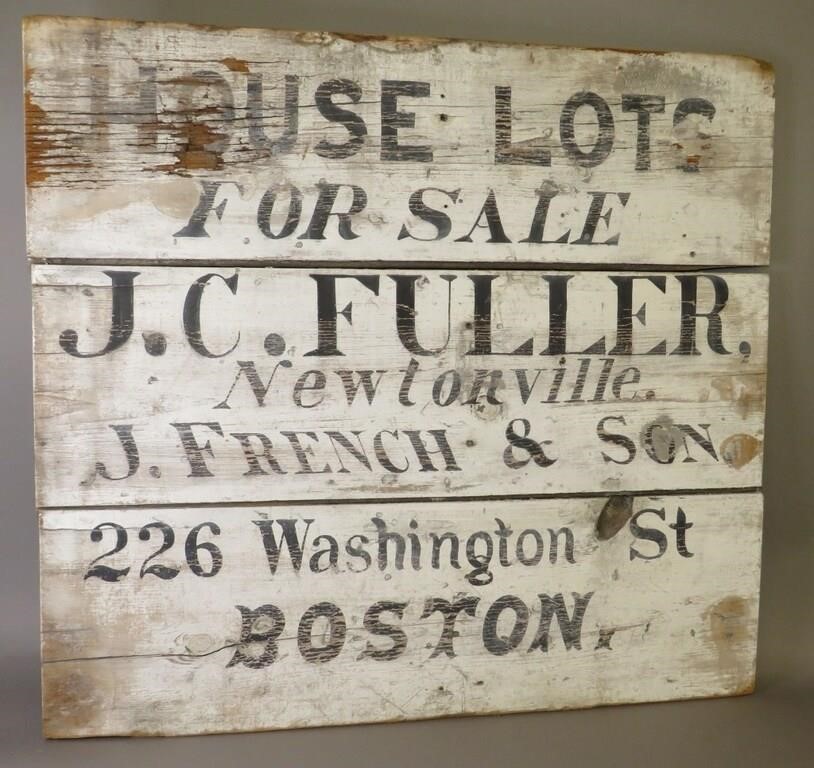 HOUSE LOTS
FOR SALE
J. C. FULLER,
Newtonville.
J. FRENCH & SON.
226 Washington St
BOSTON.